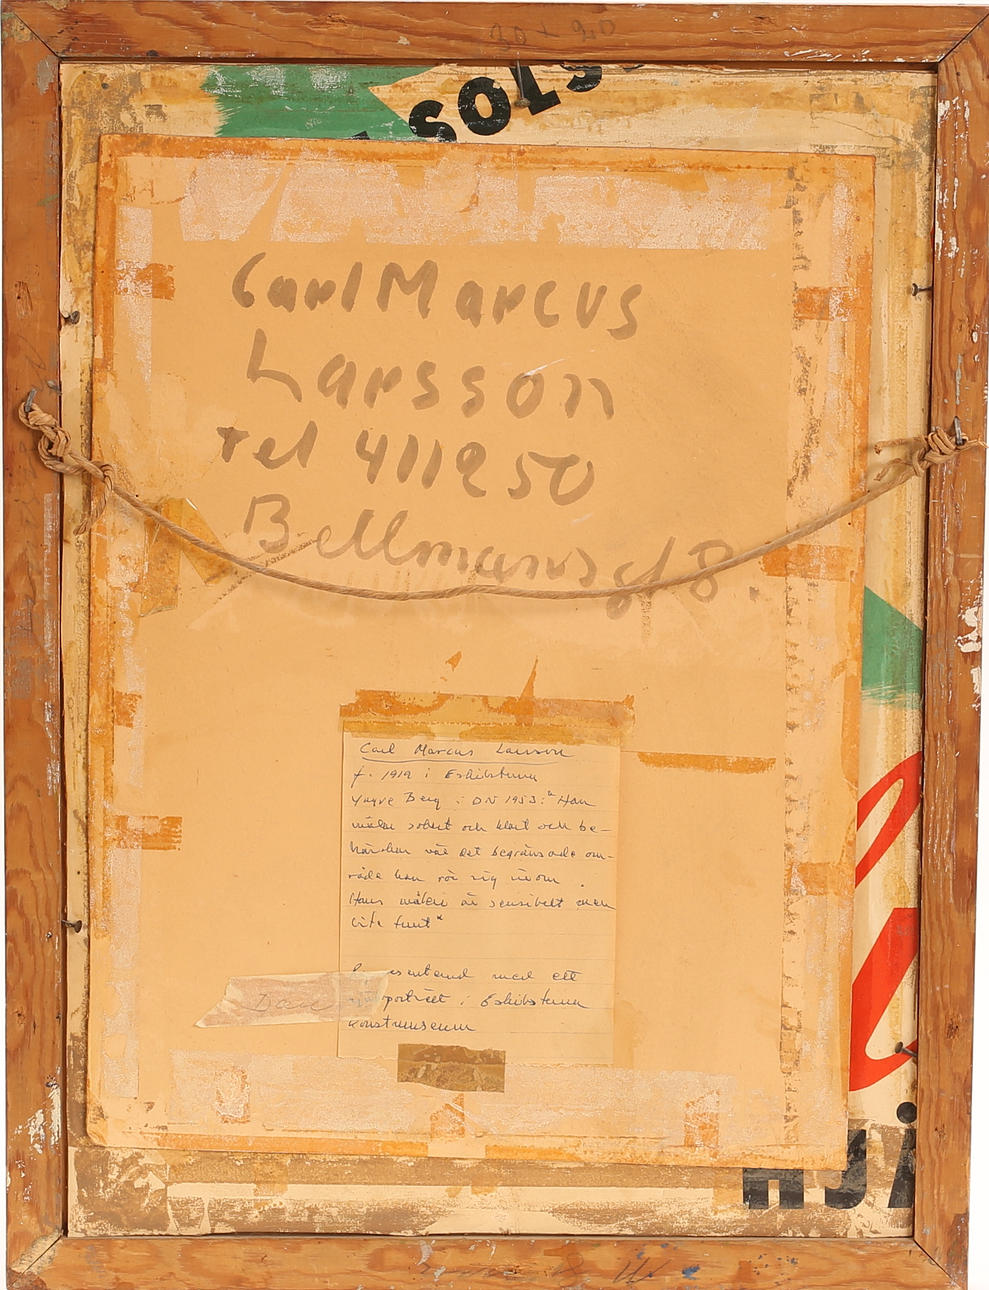 30 + 40
SOLS
Carl Marcus
Larsson
tel 411250
Bellmansg 8.
Carl Marcus Larsson
f. 1919 i Eskilstuna
Yngve Berg i DN 1953: "Han
målar sobert och klart och be-
härskar väl det begränsade om-
råde han rör sig inom.
Hans måleri är sensibelt men
lite tunt"
Representerad med ett
porträtt i Eskilstuna
konstmuseum